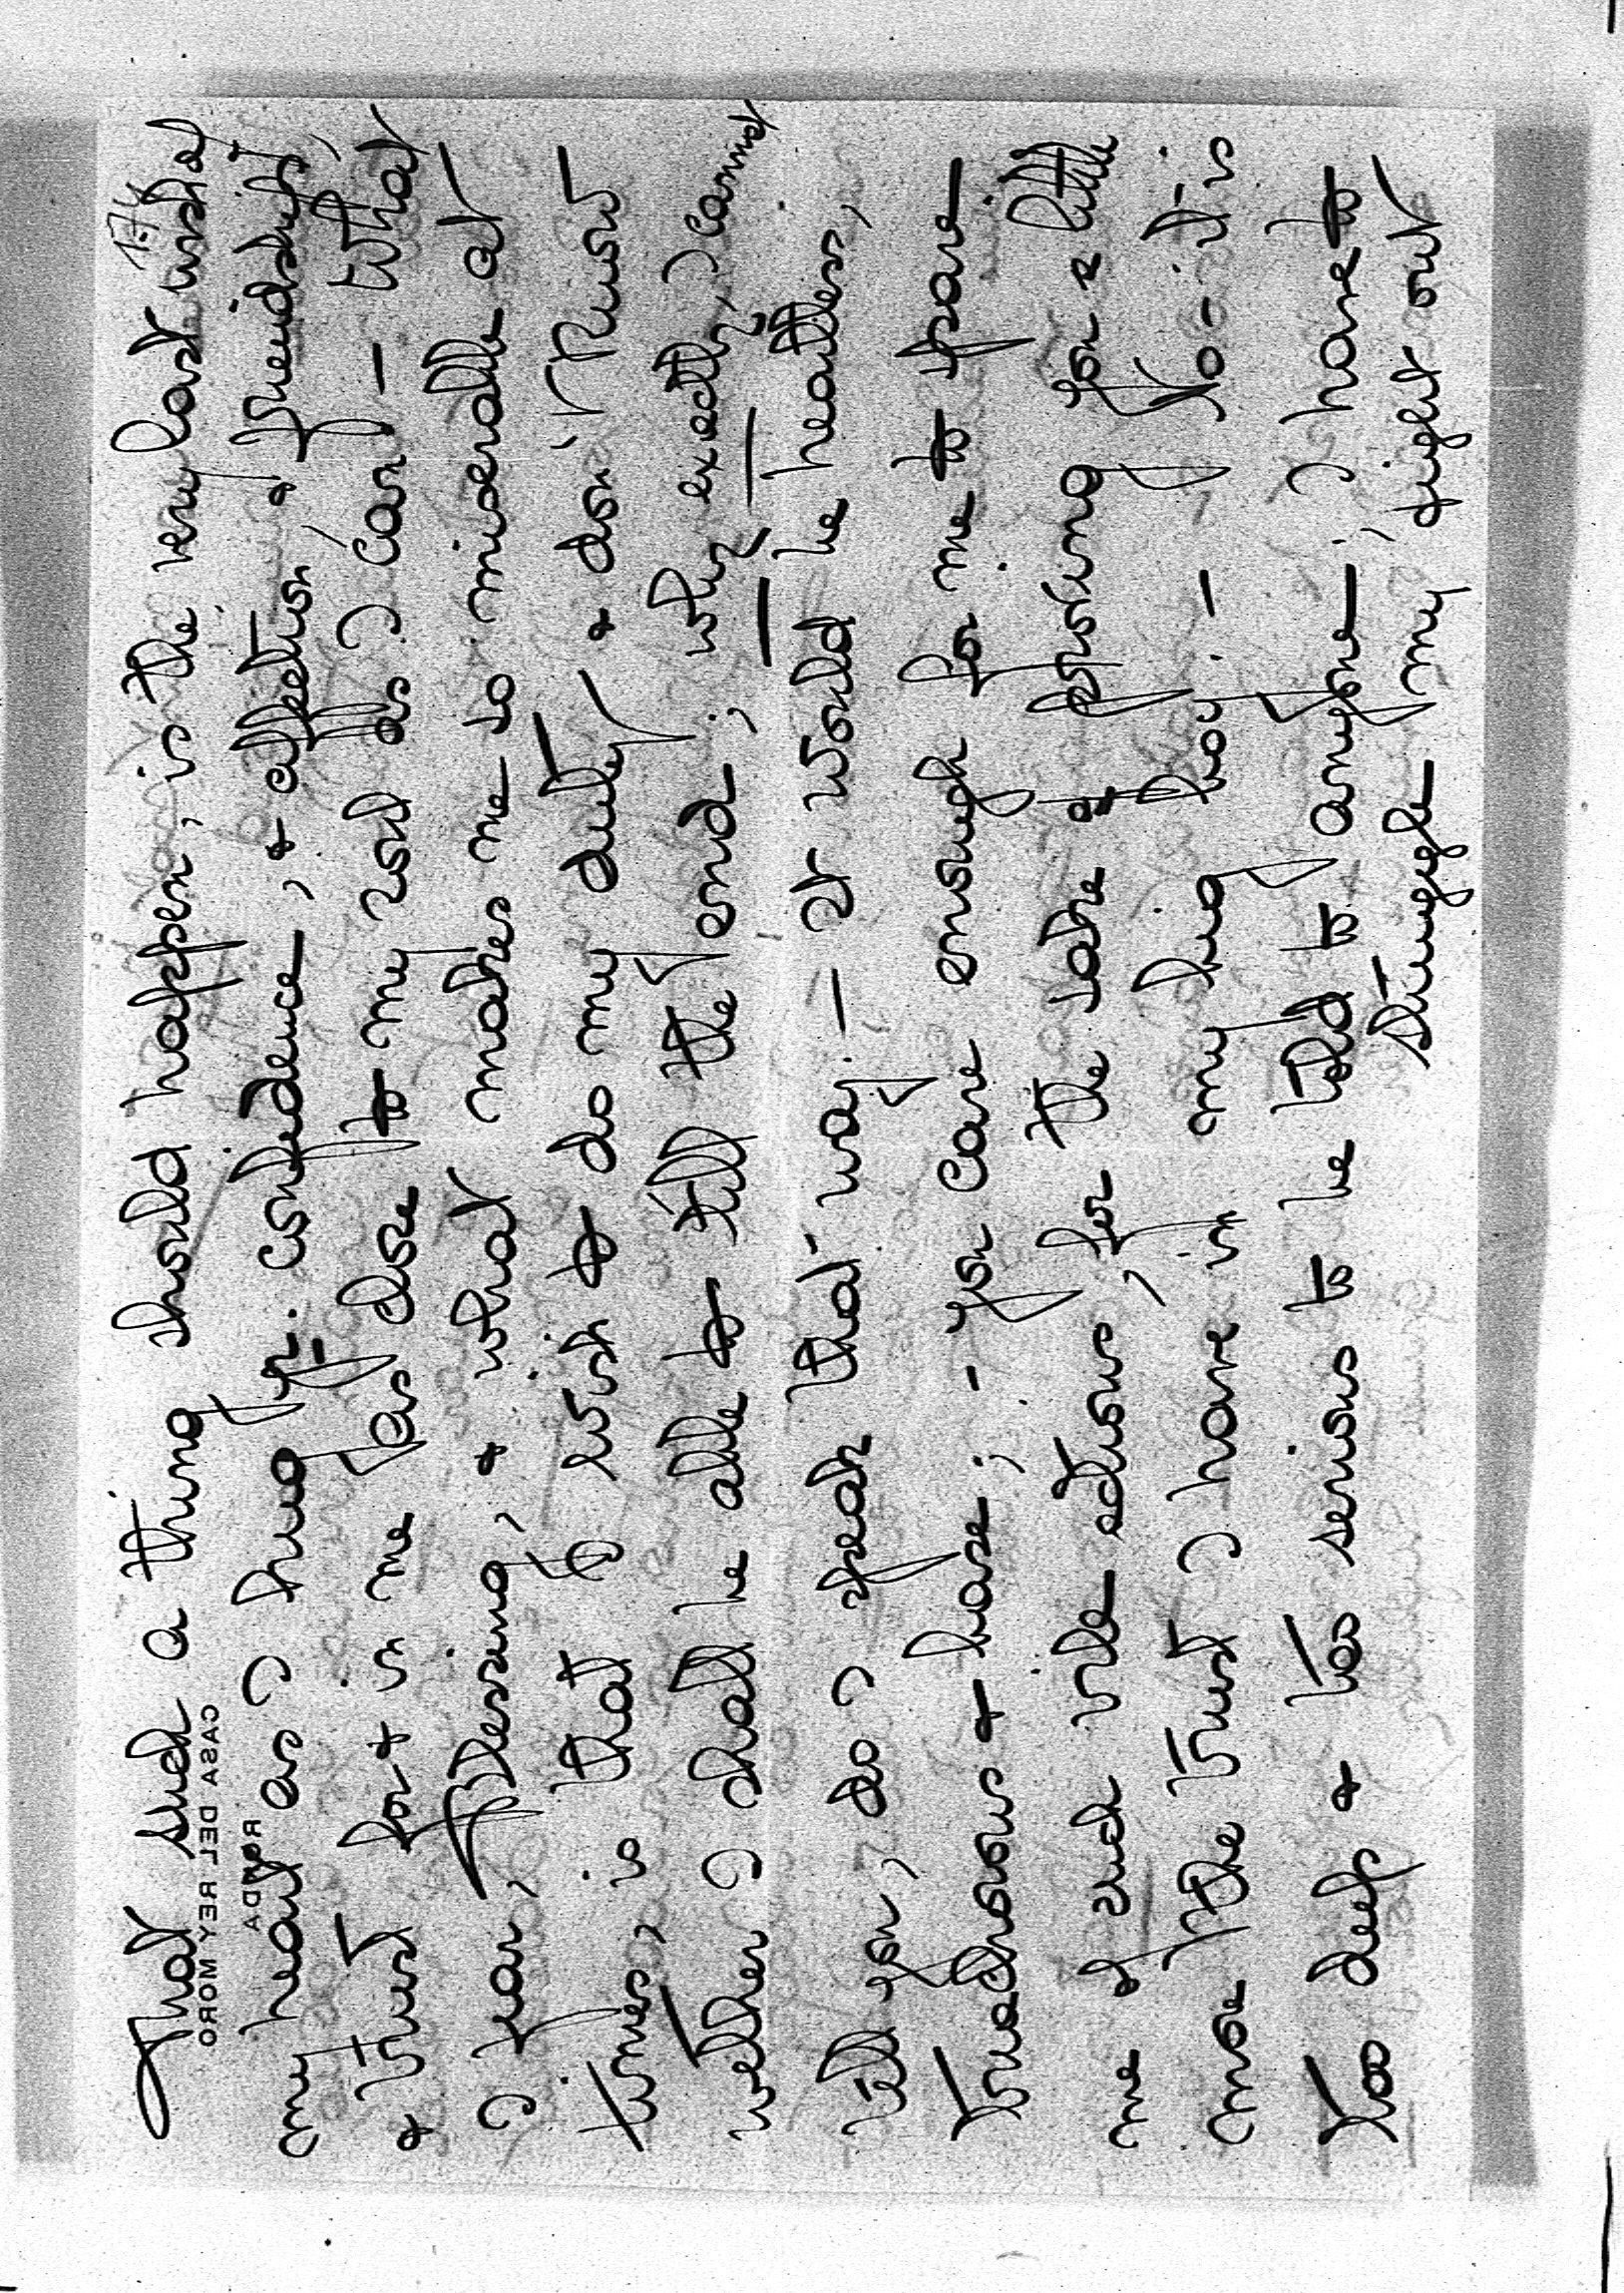 174
That such a thing should happen, is the very last wish of
my heart as I hug yr. confidence, & affection, & friendship,
& trust for & in me as close to my soul as I can — What
I fear, Blessing, & what makes me so miserable at
times, is that I wish to do my duty & don' trust
wether I shall be able to till the end; why exactly, I cannot
tell you, do I speak that way. — It would be heatless,
treachrous & base; - you care enough for me to spare
me such vile actions, for the sake of for a little
more the trust I have in my hug — No - it is
too deep & too serious to be told to anyone; I have to
struggle my fight out
CASA DEL REY MORO
RONDA